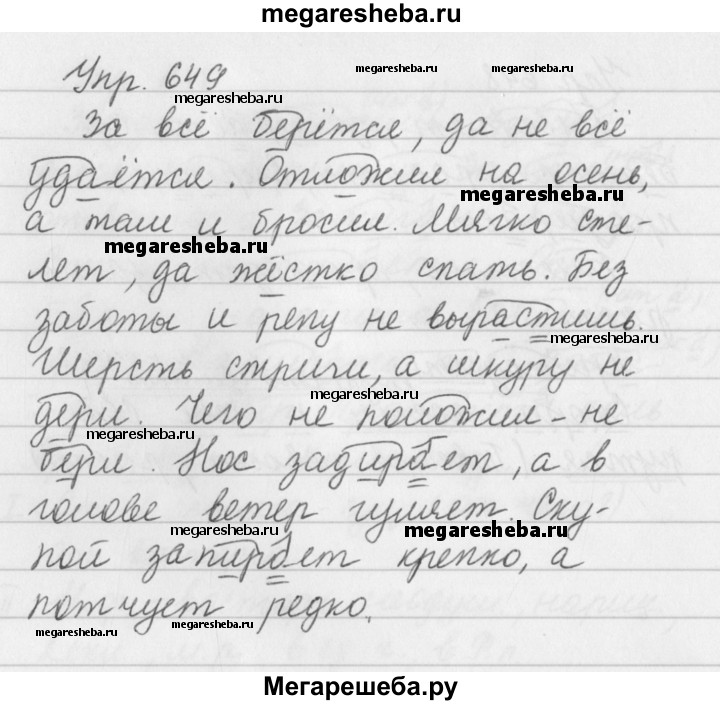 megaresheba.ru
Упр. 649
megaresheba.ru megaresheba.ru
megaresheba.ru
За всё берётся, да не всё
удаётся. Отложил на осень,
megaresheba.ru
а там и бросил. Мягко сте-
megaresheba.ru
лет, да жёстко спать. Без
заботы и репу не вырастишь.
megaresheba.ru
Шерсть стриги, а шкуру не
megaresheba.ru
дери. Чего не положил - не
megaresheba.ru
бери. Нос задирает, а в
голове ветер гуляет. Ску-
megaresheba.ru megaresheba.ru
пой запирает крепко, а
потчует редко.
megaresheba.ru megaresheba.ru megaresheba.ru
Мегарешеба.ру